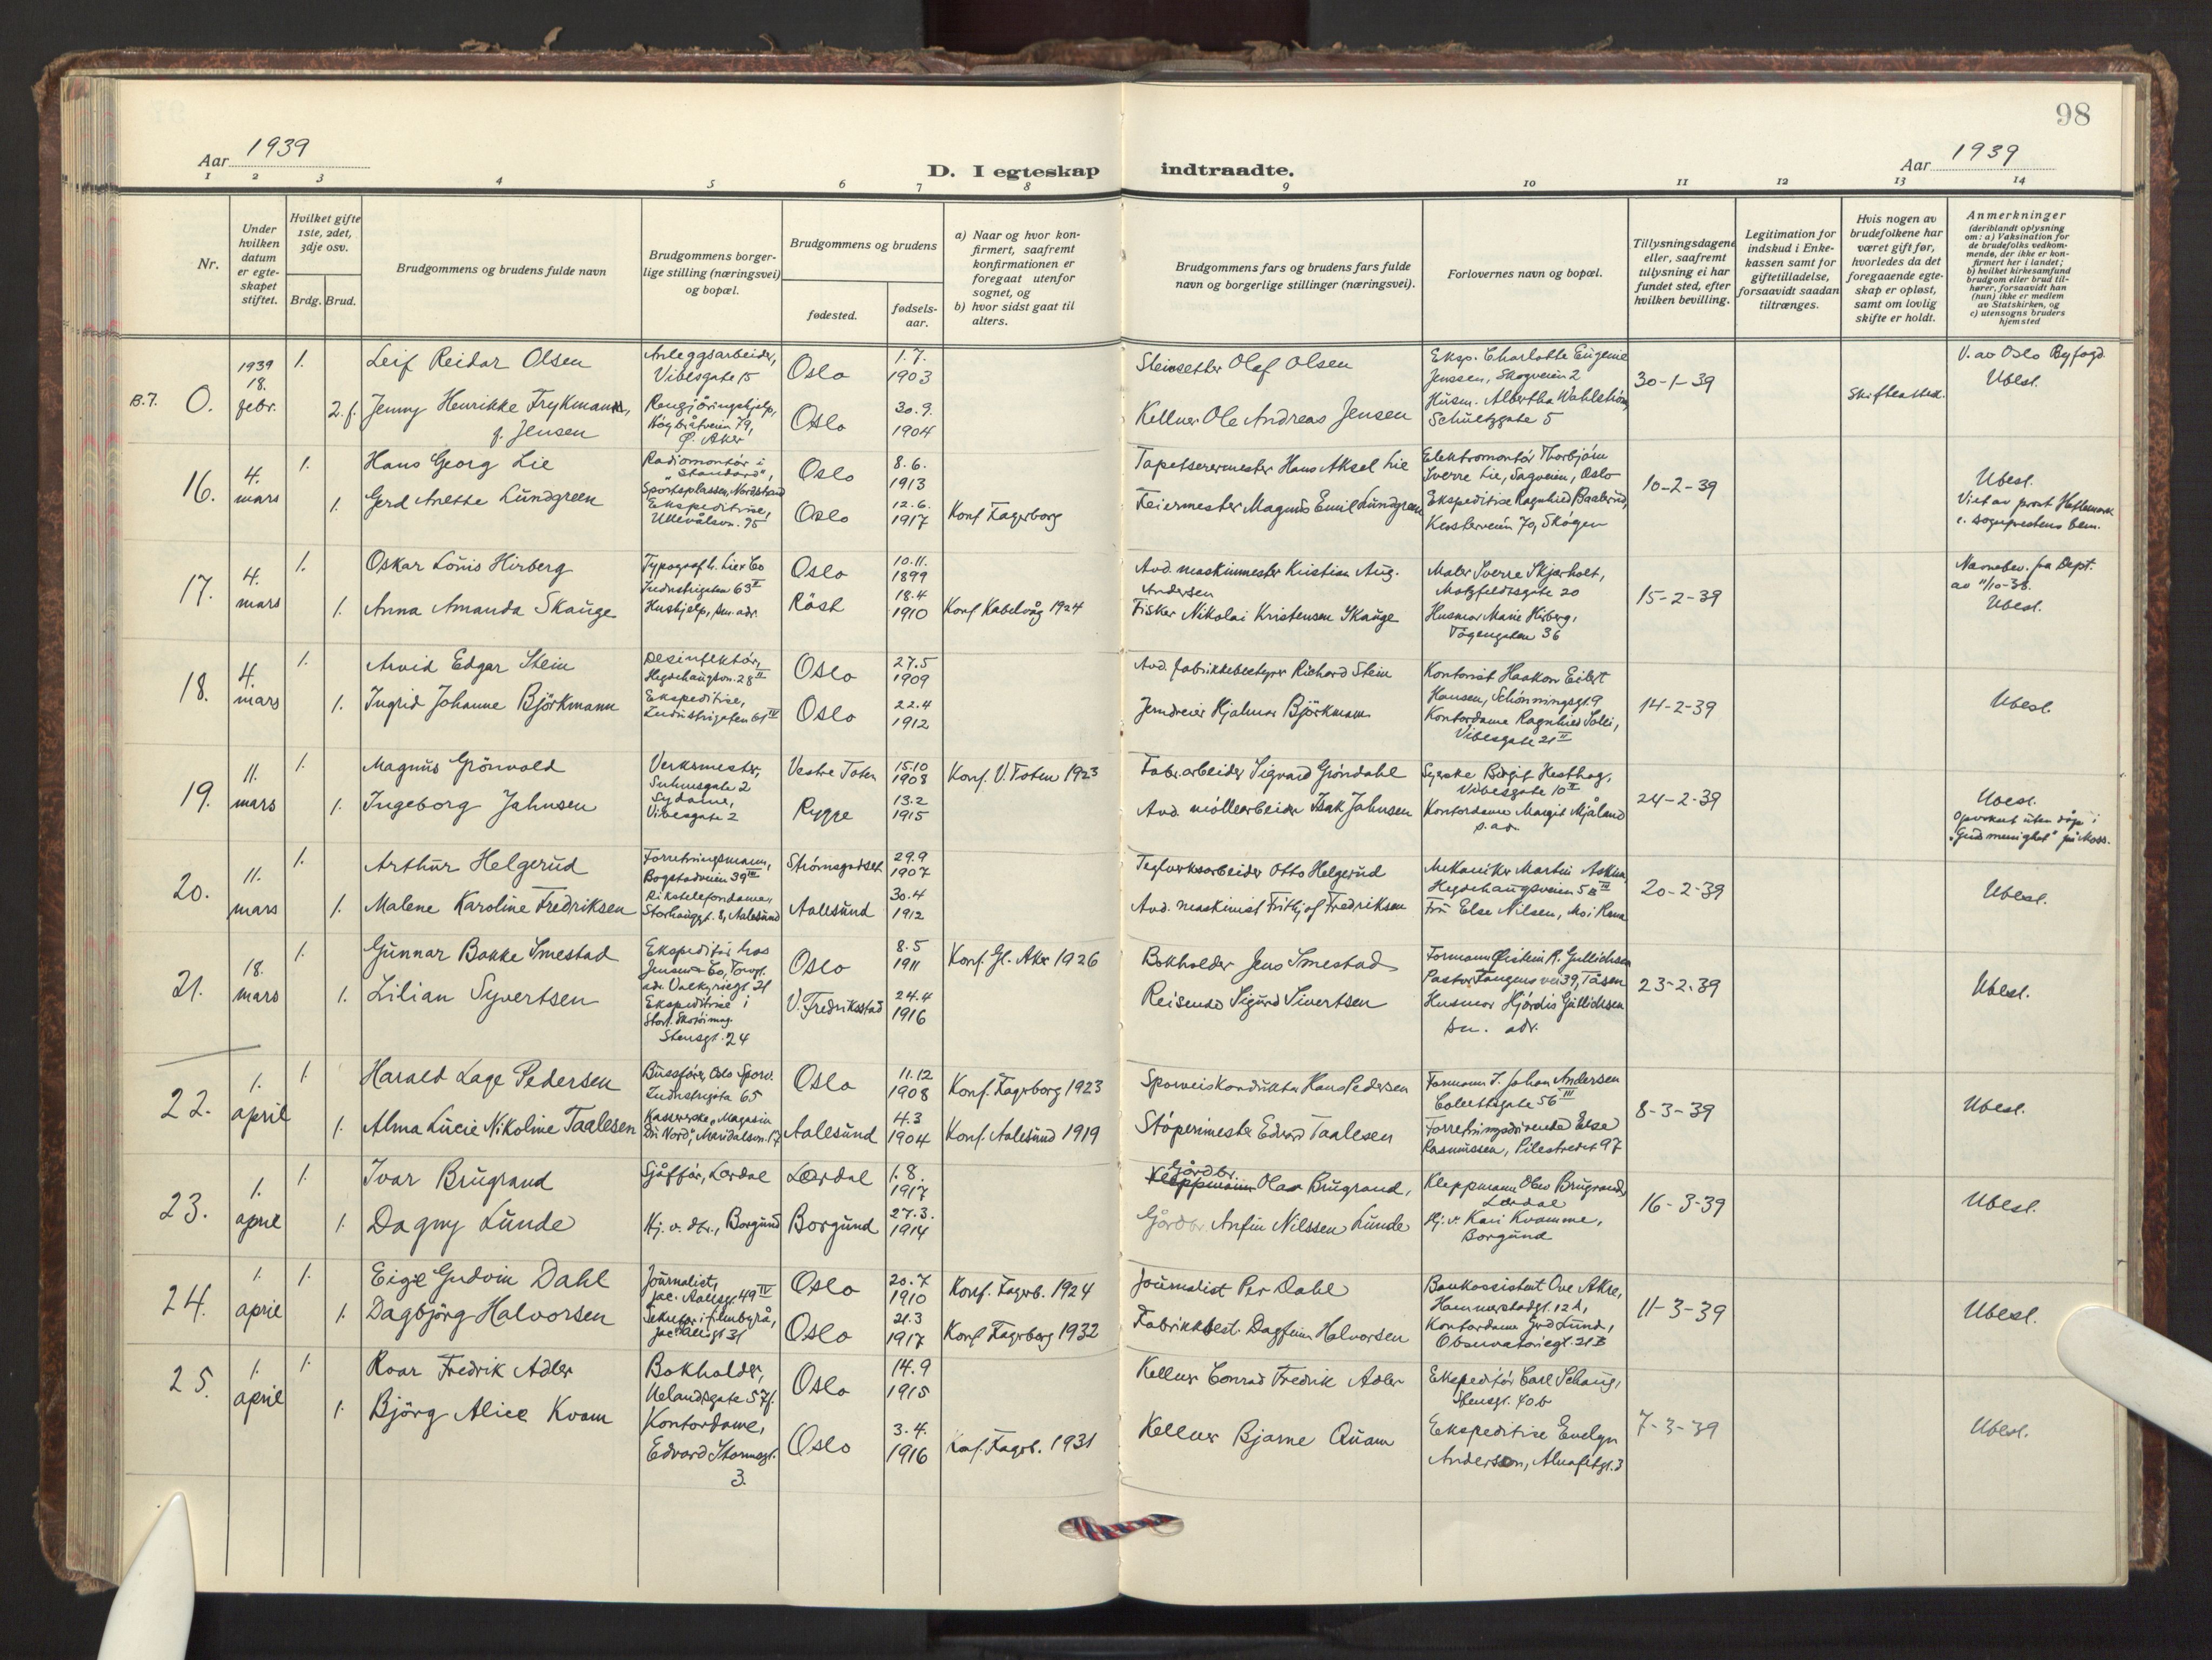 98
Aar 1939
D. I egteskap indtraadte.
Aar 1939
1 2 3 4 5 6 7 8 9 10 11 12 13 14
Nr.
Under hvilken datum er egteskapet stiftet.
Hvilket gifte 1ste, 2det, 3dje osv.
Brdg. Brud.
Brudgommens og brudens fulde navn
Brudgommens borgerlige stilling (næringsvei) og bopæl.
Brudgommens og brudens
fødested.
fødselsaar.
a) Naar og hvor konfirmert, saafremt konfirmationen er foregaat utenfor sognet, og
b) hvor sidst gaat til alters.
Brudgommens fars og brudens fars fulde navn og borgerlige stillinger (næringsvei).
Forlovernes navn og bopæl.
Tillysningsdagene eller, saafremt tillysning ei har fundet sted, efter hvilken bevilling.
Legitimation for indskud i Enkekassen samt for giftetilladelse, forsaavidt saadan tiltrænges.
Hvis nogen av brudefolkene har været gift før, hvorledes da det foregaaende egteskap er opløst, samt om lovlig skifte er holdt.
Anmerkninger
(deriblandt oplysning om: a) Vaksination for de brudefolks vedkommende, der ikke er konfirmert her i landet; b) hvilket kirkesamfund brudgom eller brud tilhører, forsaavidt han (hun) ikke er medlem av Statskirken, og c) utensogns bruders hjemsted
B.7. 0. 1939 18. febr.
1. Leif Reidar Olsen
Anleggsarbeider, Vibesgate 15
Oslo 1.7. 1903
Steinsetter Olaf Olsen
Eksp. Charlotte Eugenie Jenssen, Skogveien 2
30-1-39
V. av Oslo Byfogd.
Ubesl.
2. f. Jenny Henrikke Frykmann, f. Jensen
Rengjöringshjelp, 79, Ö. Aker
Oslo 30.9. 1904
Kellner Ole Andreas Jensen
Husm. Albertha Wahlström, Schultzgate 5
Skifteattest.
16. 4. mars
1. Hans Georg Lie
Radiomontör i "Standard", Sportsplassen, Nordstrand
Oslo 8.6. 1913
Tapetserermester Hans Aksel Lie
Elektromontör Thorbjörn Sverre Lie, Sagveien, Oslo
10-2-39
Ubesl.
Viet av prest Heflemark e. sogneprestens bem.
1. Gerd Anethe Lundgreen
Ekspeditrise, Ullevålsvn. 95
Oslo 12.6. 1917 Konf. Fagerborg
Feiermester Magnus Emil Lundgreen
Ekspeditrise Ragnhild Baalerud, 7g, Skøyen
17. 4. mars
1. Oskar Louis Hirberg
Typograf h. Lie & Co Industrigaten 63 II
Oslo 10.11. 1899
Avd. maskinmester Kristian Aug. Andersen
Maler Sverre Skjærholt, Motzfeldtsgate 20
15-2-39
Navnebev. fra Dept. av 11/10-38.
Ubesl.
1. Anna Amanda Skauge
Hushjelp, sm. adr.
Röst 18.4 1910 Konf. Kabelvåg 1924
Fisker Nikolai Kristensen Skauge
Husmor Marie Hirberg, Tøyengaten 36
18. 4. mars
1. Arvid Edgar Stein
Desinfektör, Hegdehaugsvn. 28 II
Oslo 27.5 1909
Avd. fabrikkbestyrer Richard Stein
Kontorist Haakon Eilert Hansen, Schönningsgt. 9
14-2-39
Ubesl.
1. Ingrid Johanne Björkmann
Ekspeditrise, Industrigaten 61 IV
Oslo 22.4 1912
Jerndreier Hjalmar Björkmann
Kontordame Ragnhild Solli, Vibesgate 21 II
19. 11. mars
1. Magnus Grönvold
Verksmester, Suhmsgate 2
Vestre Toten 15.10 1908 Konf. V. Toten 1923
Fabr.arbeider Sigvard Gröndahl
Syerske Birgit Hesthag, Vibesgate 10 II
24-2-39
Ubesl.
Opvokset uten dåp i "Guds menighet" på Moss.
1. Ingeborg Jahnsen
Sydame, Vibesgate 2
Rygge 13.2 1915
Avd. möllearbeider Isak Jahnsen
Kontordame Margit Mjåland s. ad.
20. 11. mars
1. Arthur Helgerud
Forretningsmann, Bogstadveien 39 III
Strömsgodset 29.9 1907
Teglverksarbeider Otto Helgerud
Mekaniker Martin Askim, Hegdehaugsveien 5
20-2-39
Ubesl.
1. Malene Karoline Fredriksen
Rikstelefondame, Storhauggt. 8, Aalesund
Aalesund 30.4 1912
Avd. maskinist Frithjof Fredriksen
Fru Else Nilsen, Moi Rana
21. 18. mars
1. Gunnar Bakke Smestad
Ekspeditör hos Jensen & Co, Torvgt. adr. Valkyriegt. 21
Oslo 8.5 1911 Konf. Gl. Aker 1926
Bokholder Jens Smestad
Formann Øistein R. Gullichsen Pastor Fangens vei 39, Tåsen
23-2-39
Ubesl.
1. Lilian Syvertsen
Ekspeditrise i Stort. Skotöimag. Stensgt. 24
V. Fredrikstad 24.4 1916
Reisende Sigurd Sivertsen
Husmor Hjördis Gullichsen sm. adr.
22. 1. april
1. Harald Lage Pedersen
Bussförer, Oslo Sporv. Industrigata 65
Oslo 11.12 1908 Konf. Fagerborg 1923
Sporveiskonduktör Hans Pedersen
Formann J. Johan Andersen Colletsgate 56 III
8-3-39
Ubesl.
1. Alma Lucie Nikoline Taalesen
Kassererske, Magasin "Du Nord", Maridalsvn. 17
Aalesund 4.3 1904 Konf. Aalesund 1919
Stöperimester Edvard Taalesen
Forretningsdrivende Else Rasmussen, Pilestredet 97
23. 1. april
1. Ivar Brugrand
Sjåfför, Lærdal
Lærdal 1.8. 1917
Kleppmann Gårdbr. Olav Brugrand,
Kleppmann Olav Brugrand, Lærdal
16-3-39
Ubesl.
1. Dagny Lunde
Hj. v. dtr., Borgund
Borgund 27.3. 1914
Gårdbr. Anfin Nilssen Lunde
Hj. v. Kari Kvamme, Borgund
24. 1. april
1. Eigil Gudvin Dahl
Journalist, Jac. Aallsgt. 49 IV
Oslo 20.7 1910 Konf. Fagerb. 1924
Journalist Per Dahl
Bankassistent Ove Aker, Hammerstadgt. 12 A,
11-3-39
Ubesl.
1. Dagbjörg Halvorsen
Sekretær i filmbyrå, Jac. Aallsgt 31
Oslo 21.3 1917 Konf. Fagerborg 1932
Fabrikkbest. Dagfinn Halvorsen
Kontordame Gerd Lund, Observatoriegt. 21 B
25. 1. april
1. Roar Fredrik Adler
Bokholder, Uelandsgate 57 f.
Oslo 14.9 1915
Kellner Conrad Fredrik Adler
Ekspeditör Carl Schaug, Stensgt. 40 b
7-3-39
Ubesl.
1. Björg Alice Kvam
Kontordame, Edvard Stormsgt. 3.
Oslo 3.4. 1916 Konf. Fagerb. 1931
Kellner Bjarne Quam
Ekspeditrise Evelyn Andersson, Almafetgt. 3